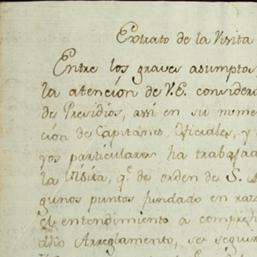 Extrato de la Visita
Entre los graves asumptos
la atencion de V.E. consider
de Presidios, assi en su nume
cion de Capitanes, Oficiales, y
gos particulares ha trabajad
la Visita, q.e de orden de S.
gunos puntos fundado en raz
el entendimiento a compreh
dho Arreglamento, se segui